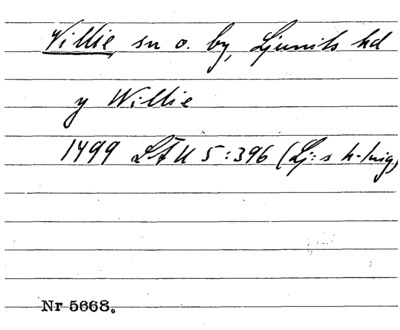 Willie, sn o. by, Ljunits hd
y Willie
1499 LÄU 5:396 (Lj:s h-ting)
Nr 5668.